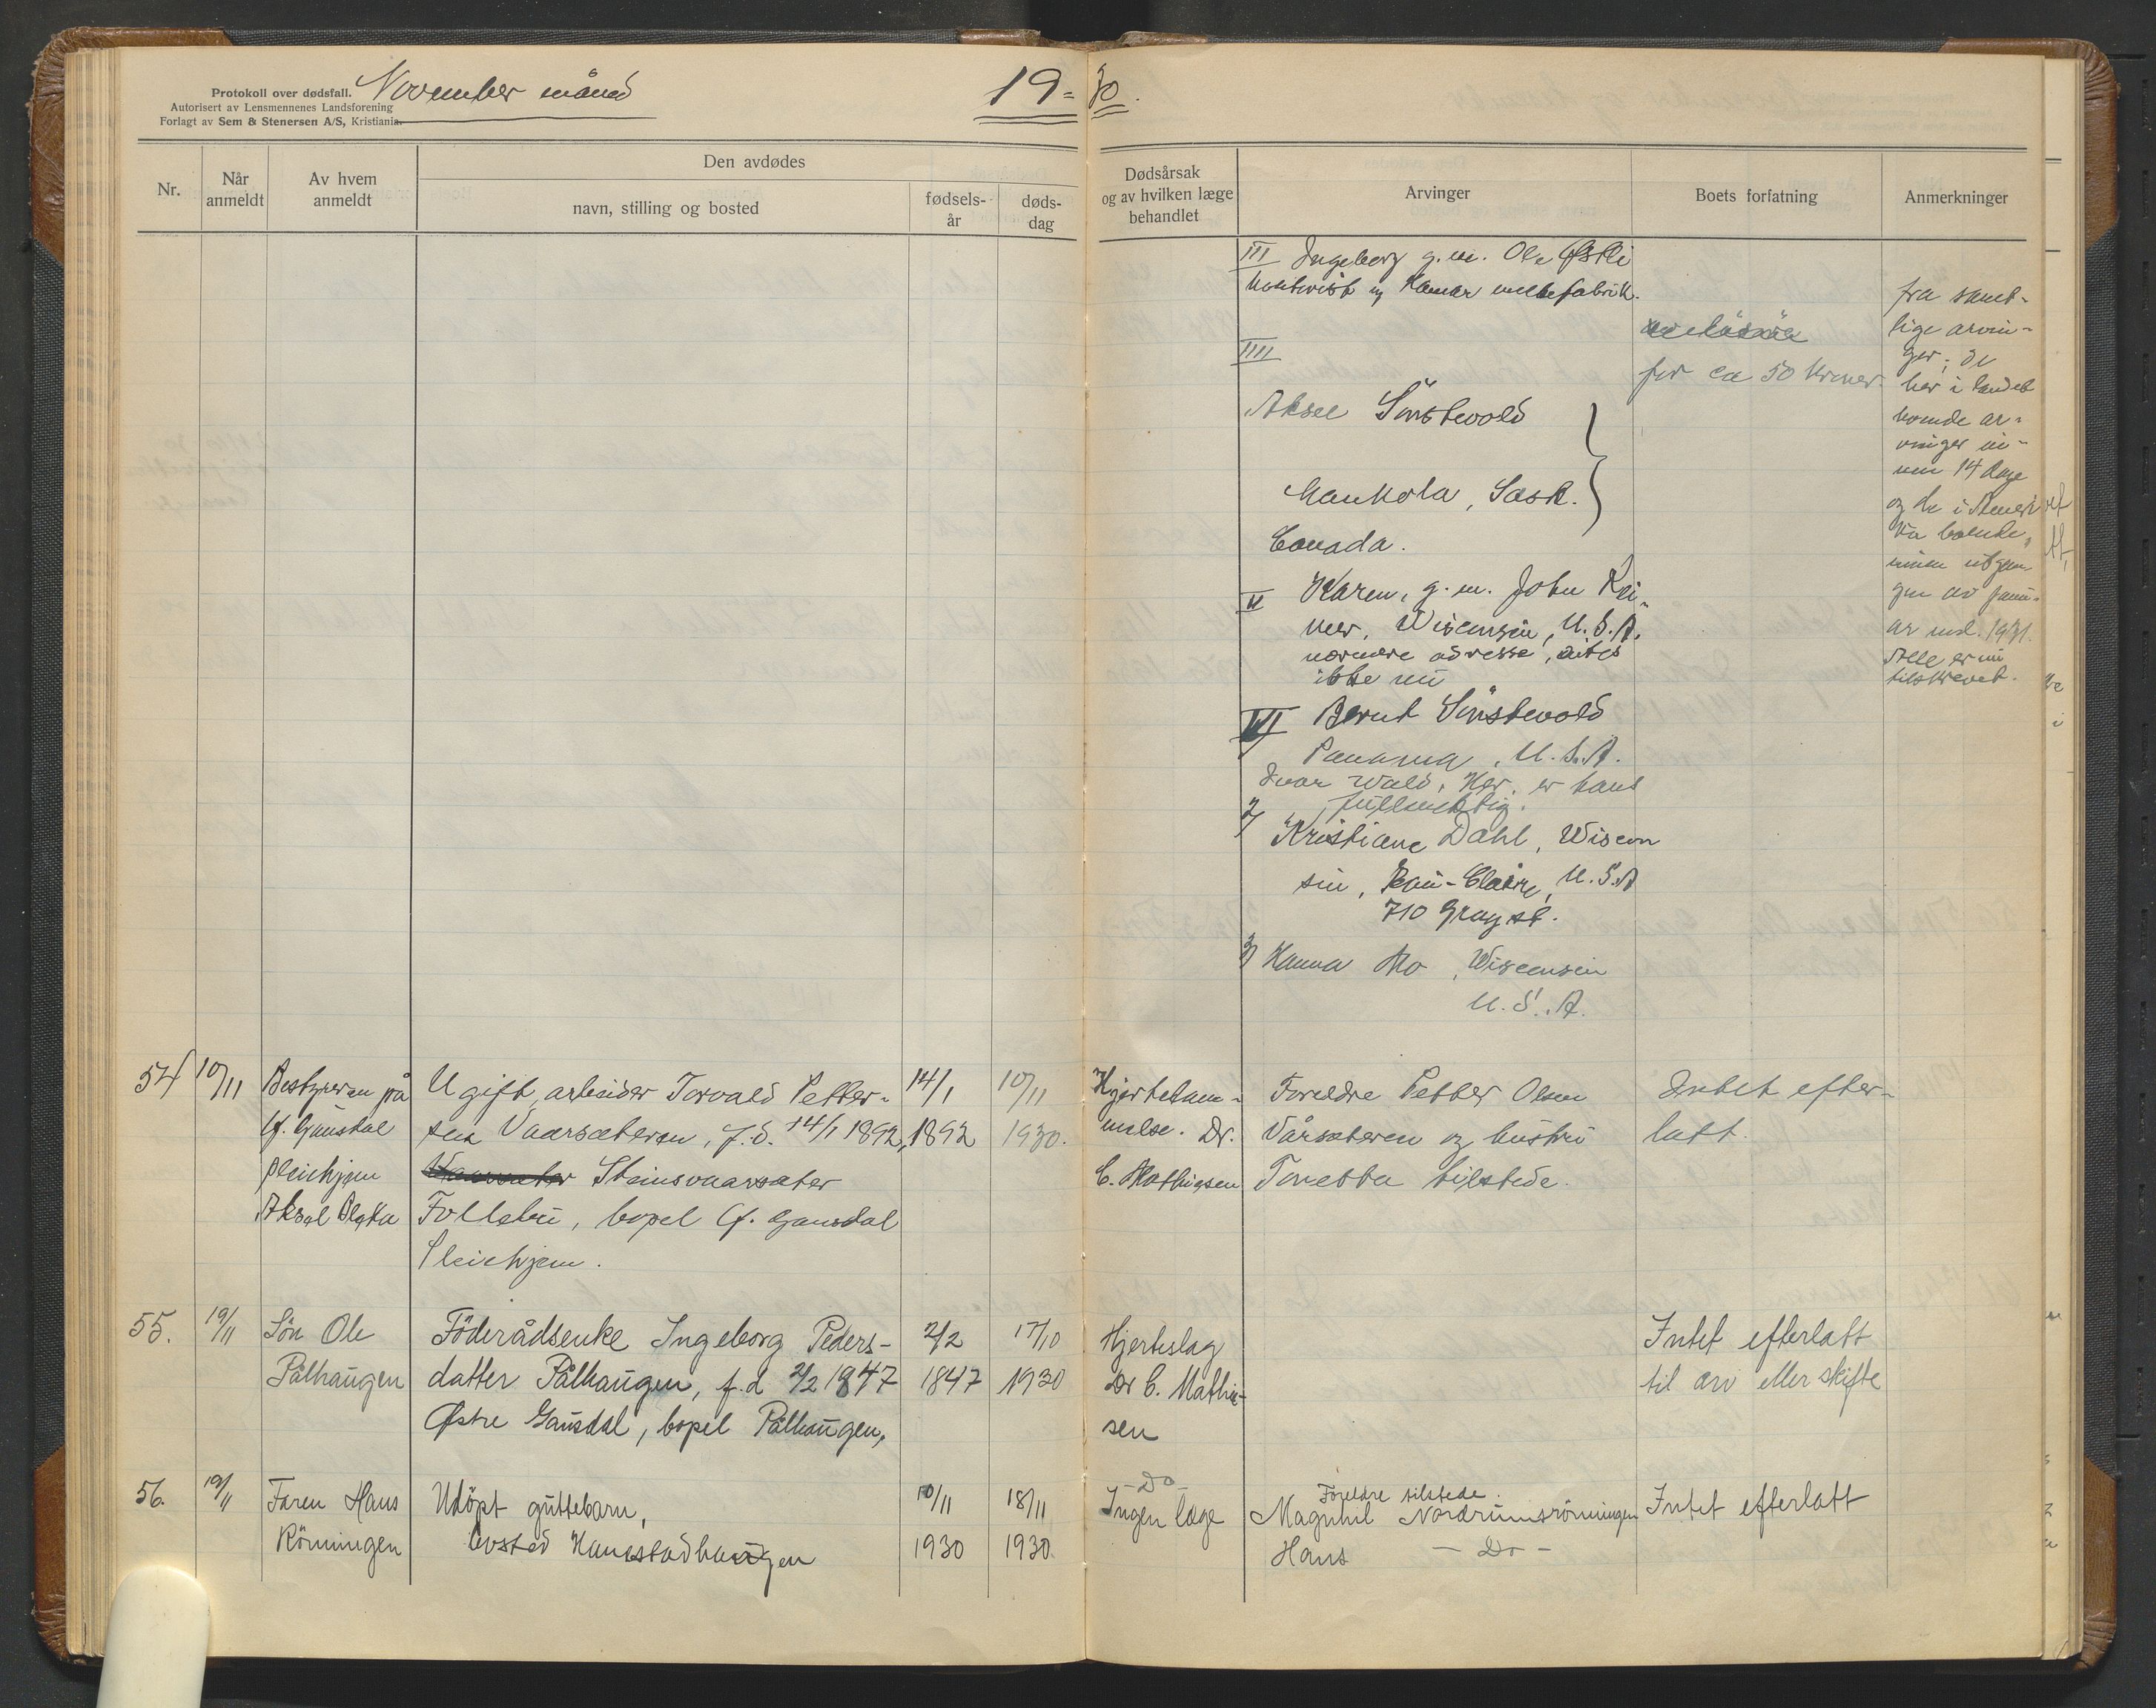 Protokoll over dødsfall.
Autorisert av Lensmennenes Landsforening
Forlagt av Sem & Stenersen A/S, Kristiania.
November måned
19 = 30.
Nr.
Når anmeldt
Av hvem anmeldt
Den avdødes
navn, stilling og bosted
fødsels-år
døds-dag
Dødsårsak og av hvilken læge behandlet
Arvinger
Boets forfatning
Anmerkninger
III Ingeborg g.m. Ole Østli
og Hamar
IIII
Aksel Sönstevold
Mankota, Sask.
Canada.
V Karen, g.m. John Rei-
mer, Wisconsin, U.S.A.
nærmere adresse,
ikke nu
VI Bernt Sönstevold
Panama, U.S.A.
Ivar Wald, Her. er hans
fullmektig.
2) Kristiane Dahl, Wiscon
sin, Eau-Claire, U.S.A
710 Gray st.
3) Hanna Mo, Wisconsin
U.S.A.
for ca 50 kroner.
fra samt-
lige arvin-
ger; de
her i landet
boende ar-
vinger in-
nen 14 dage
og de i Ameri
ka boende,
innen utgan
gen av janu-
ar md. 1931.
Alle er nu
tilskrevet.
54 10/11 Bestyreren på Ugift arbeider Torvald Petter- 14/1 10/11 Hjertelam- Foreldre Petter Olsen Intet efter-
Ø. Gausdal sen Vaarsæteren, f.d. 14/1 1892, 1892 1930. melse. Dr. Vårsæteren og hustru latt.
Pleiehjem Steinsvaarsæter C. Mathiesen Tonetta tilstede.
Aksel Follebu, bopel Ø. Gausdal
Pleiehjem.
55. 19/11 Sön Ole Föderådsenke Ingeborg Peders- 2/2 17/10 Hjerteslag Intet efterlatt
Pålhaugen datter Pålhaugen, f.d 2/2 1847 1847 1930 Dr C. Mathie- til arv eller skifte
Østre Gausdal, bopel Pålhaugen, sen
56. 19/11 Faren Hans Udöpt guttebarn, 10/11 18/11 - Do - Foreldre tilstede.
Ingen læge Magnhil Nordrumsrönningen Intet efterlatt
Rönningen bosted Kankstadhaugen 1930 1930. Hans - Do -